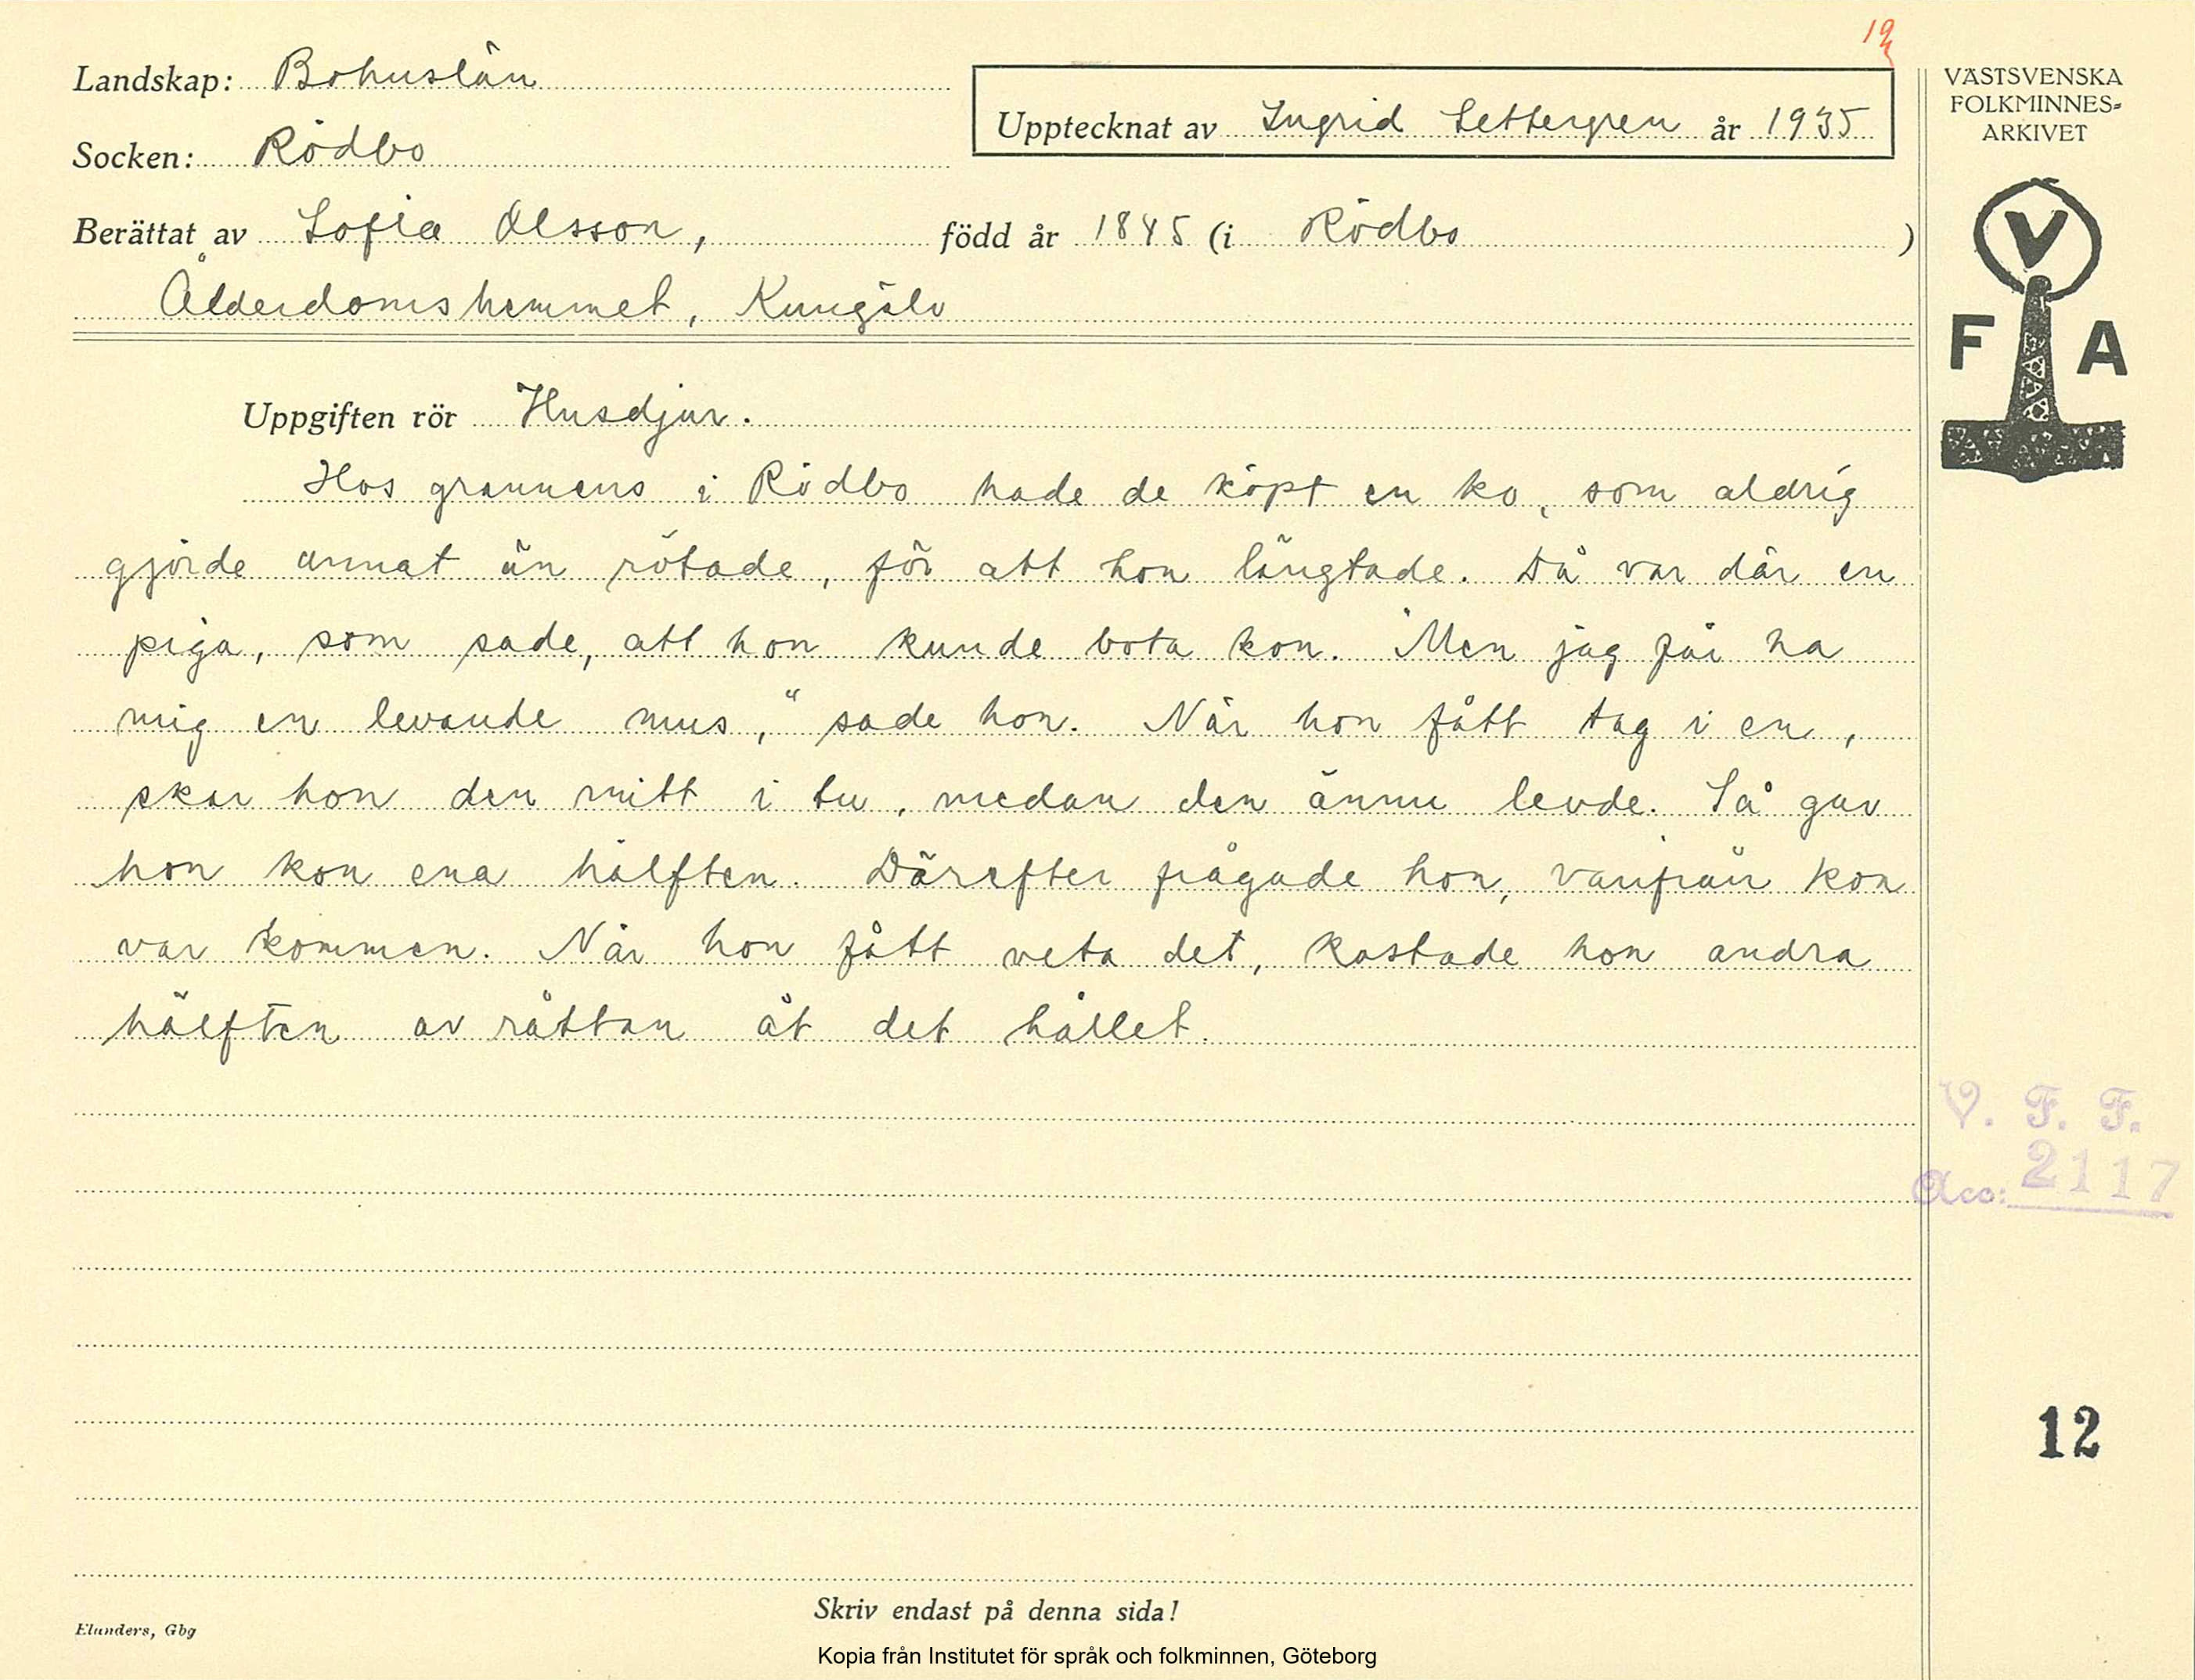 19
Landskap: Bohuslän
Upptecknat av Ingrid Settergren år 1935
Socken: Rödbo
Berättat av Sofia Olsson, född år 1845 (i Rödbo )
Ålderdomshemmet, Kungälv
VÄSTSVENSKA
FOLKMINNES-
ARKIVET
V
F A
Uppgiften rör Husdjur.
Hos grannens i Rödbo hade de köpt en ko, som aldrig
gjorde annat än rötade, för att hon längtade. Då var där en
piga, som sade, att hon kunde bota kon. "Men jag får ha
mig en levande mus," sade hon. När hon fått tag i en,
skar hon den mitt i tu, medan den ännu levde. Så gav
hon kon ena hälften. Därefter frågade hon, varifrån kon
var kommen. När hon fått veta det, kastade hon andra
hälften av råttan åt det hållet.
V. F. F.
Acc: 2117
12
Skriv endast på denna sida!
Elanders, Gbg
Kopia från Institutet för språk och folkminnen, Göteborg